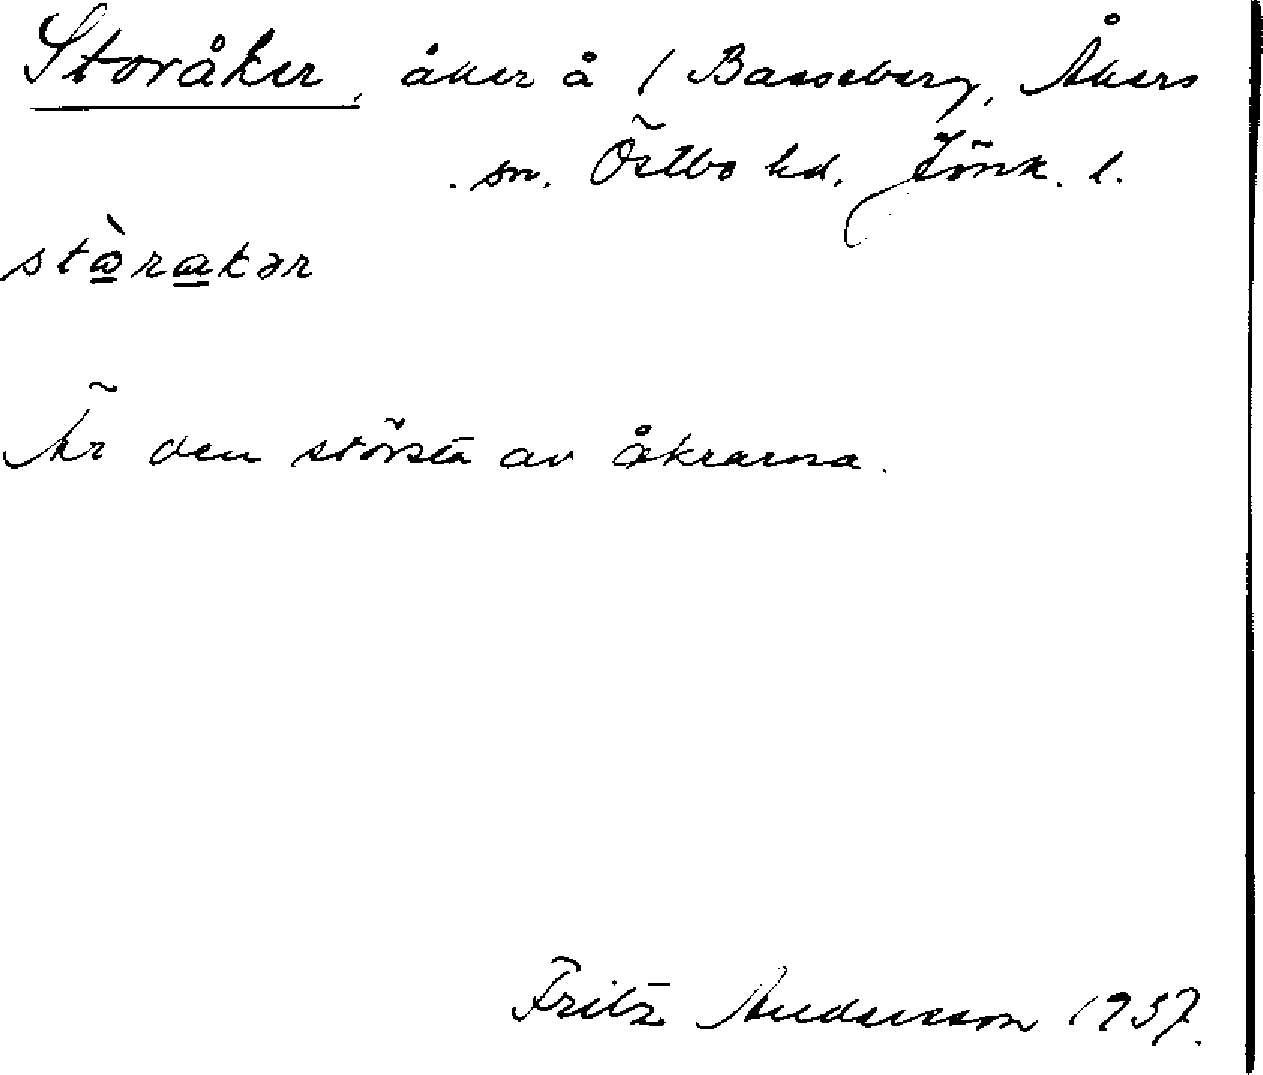 Storåker, åker å / Basseberg, Åkers
sn. Östbo hd. Jönk. l.
stàrakər
Är den största av åkrarna.
Fritz Andersson 1937.